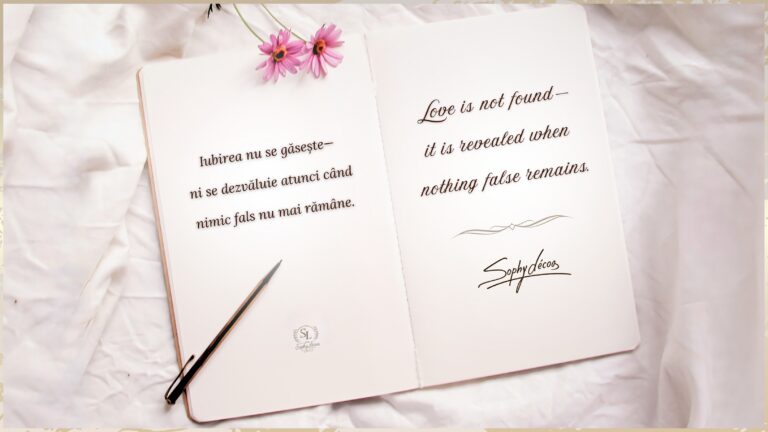 Iubirea nu se găsește—
ni se dezvăluie atunci când
nimic fals nu mai rămâne.
SL
Sophy Lécoas
Love is not found—
it is revealed when
nothing false remains.
Sophy Lécoas